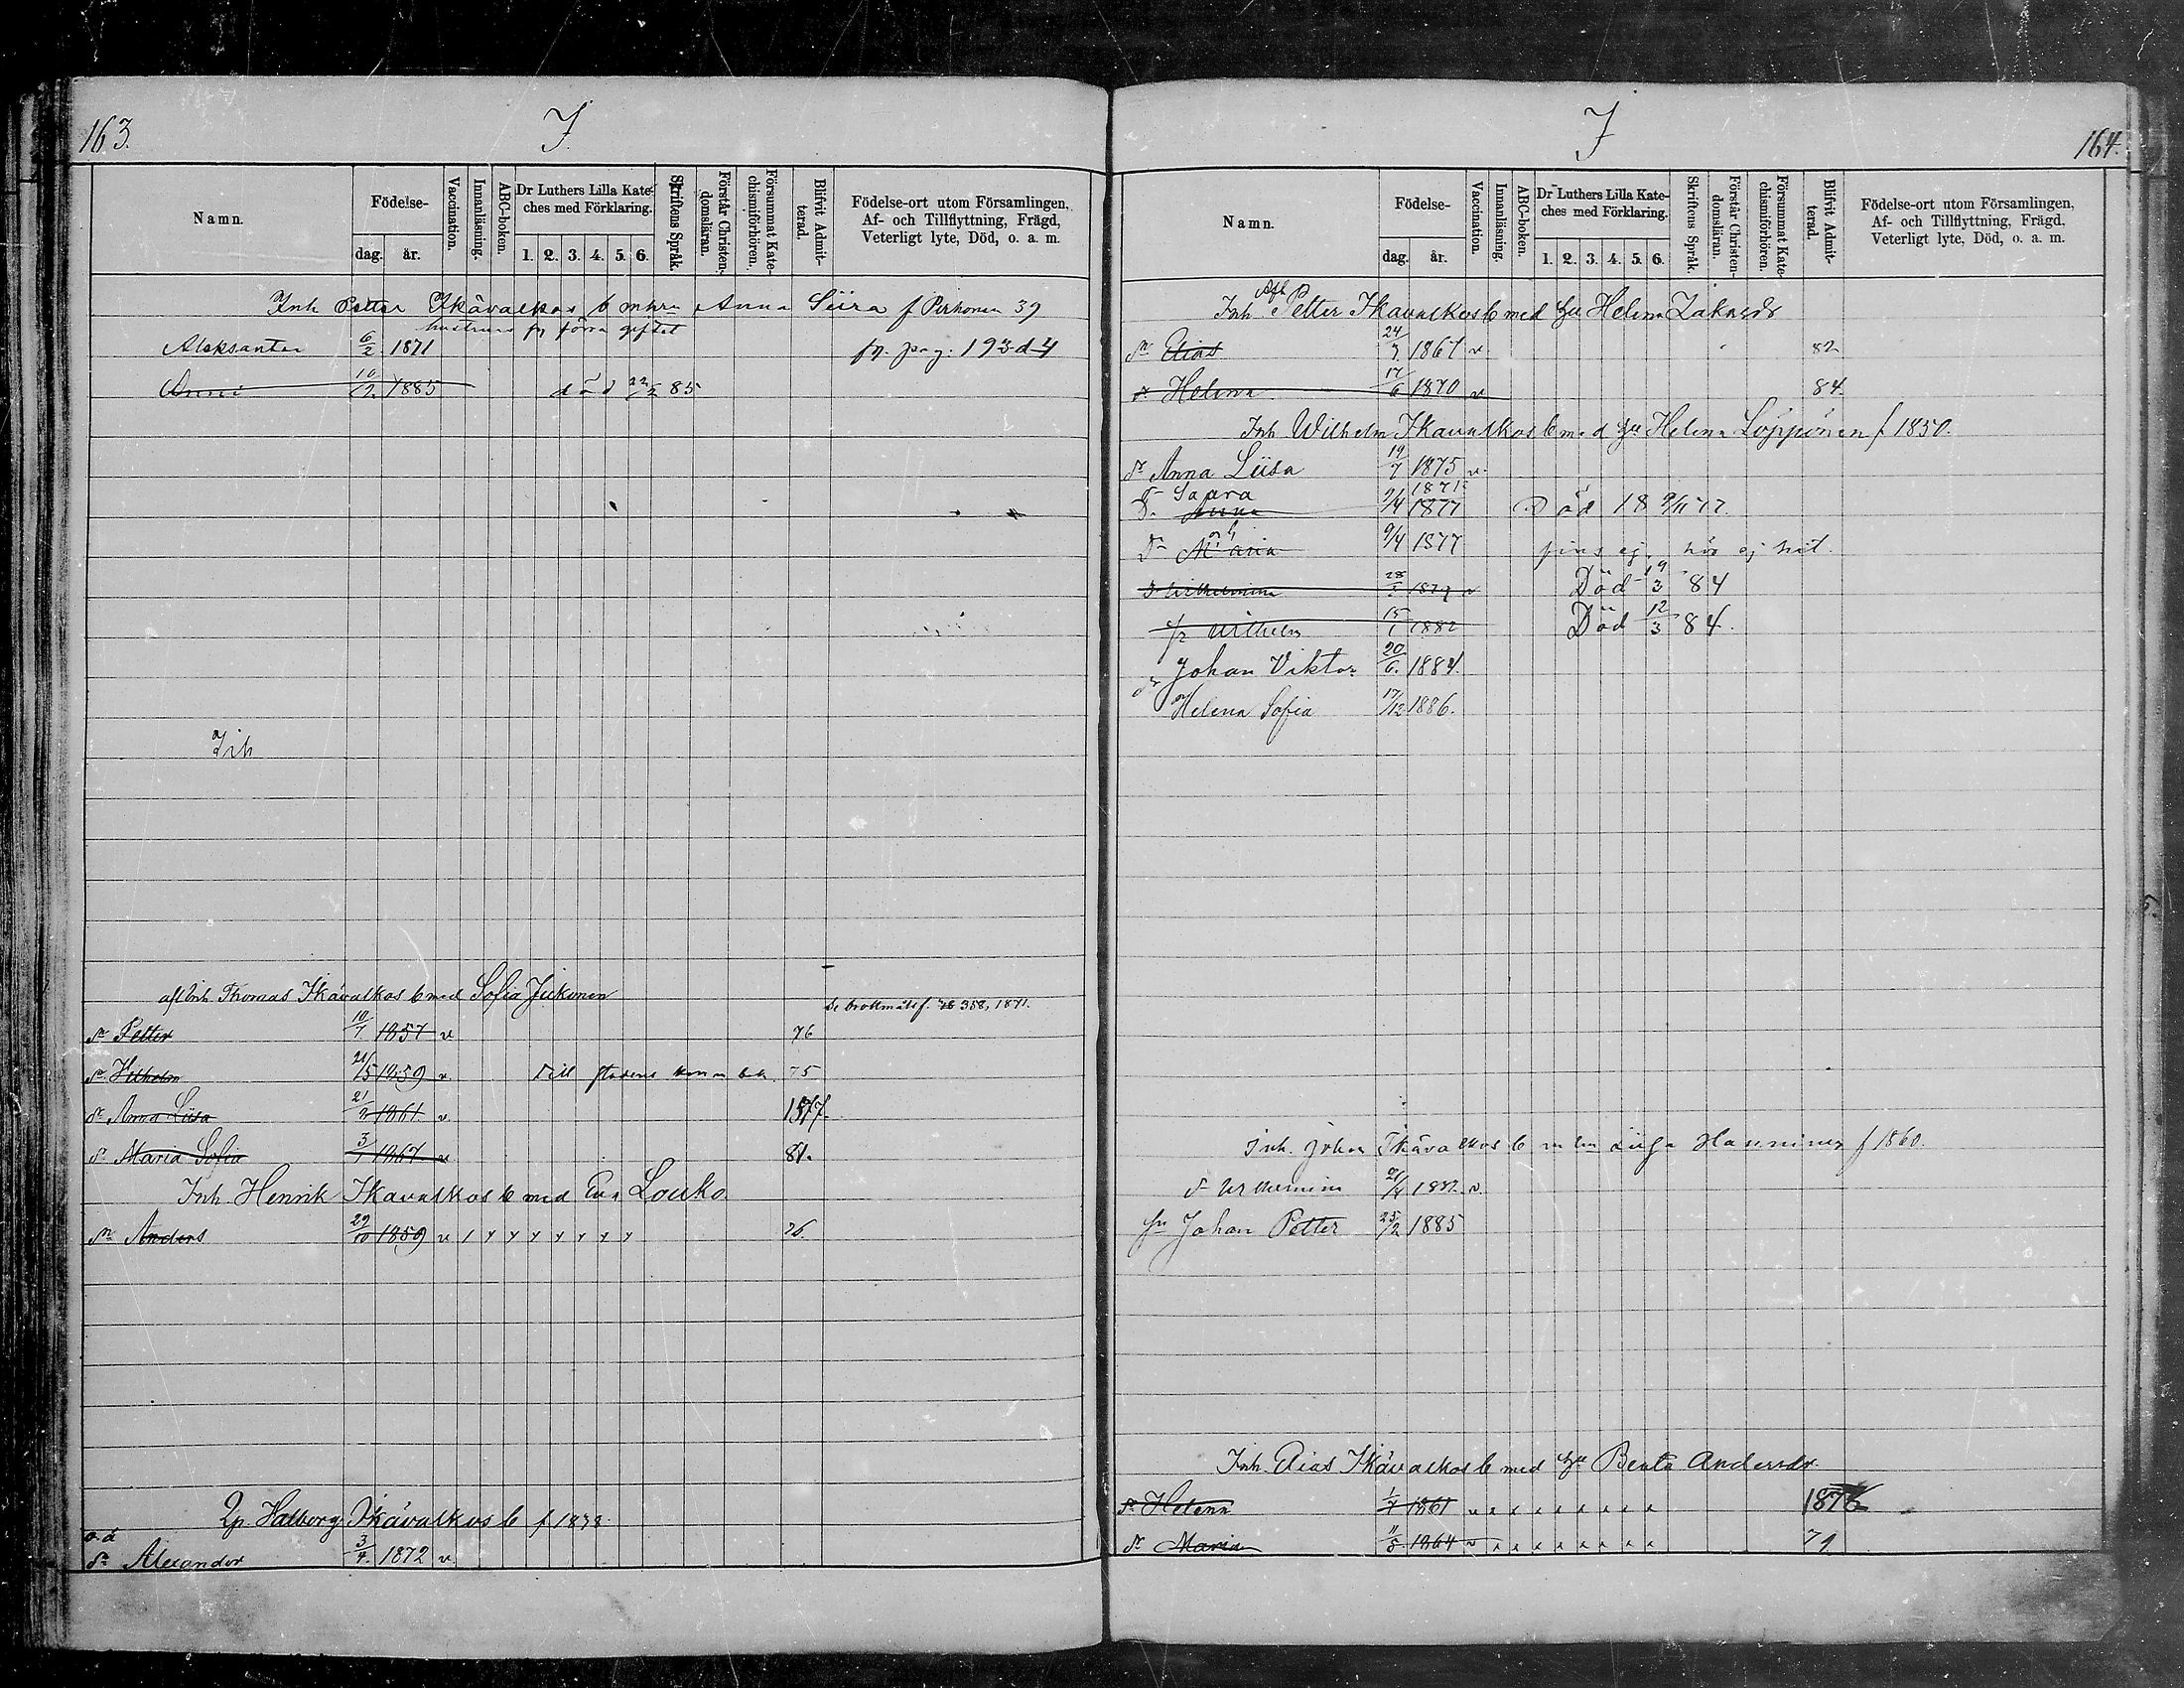 163.
I.
Namn.
Födelse-
dag.
år.
Vaccination.
Innanläsning.
ABC-boken.
Dr Luthers Lilla Kate-
ches med Förklaring.
1. 2. 3. 4. 5. 6.
Skriftens Språk.
Förstår Christen-
domsläran.
Försummat Kate-
chismiförhören.
Blifvit Admit-
terad.
Födelse-ort utom Församlingen,
Af- och Tillflyttning, Frägd,
Veterligt lyte, Död, o. a. m.
Inh Petter Ikävalkos b Anna Siira f Pirhonen 39
hustruns förra giftet
Aleksanter 6/2 1871
Anni 10/2 1885 död 22/2 85
Inh
afl Inh Thomas Ikävalkos b med Sofia
358, 1871.
Sn Petter 10/7 1857 v 76
Sn Vilhelm 21/5 1859 v. Till stadens 75
dr Anna Liisa 21/2 1861 v. 1877
dr Maria Sofia 3/1 1867 v 81.
Inh Henrik Ikavalkos b med Eva Louko
Sn Anders 29/10 1859 v 76.
Halborg Ikävalkos b f 1838
o. ä
Sn Alexander 3/4. 1872 v
I
164.
Namn.
Födelse-
dag.
år.
Vaccination.
Innanläsning.
ABC-boken.
Dr Luthers Lilla Kate-
ches med Förklaring.
1. 2. 3. 4. 5. 6.
Skriftens Språk.
Förstår Christen-
domsläran.
Försummat Kate-
chismiförhören.
Blifvit Admit-
terad.
Födelse-ort utom Församlingen,
Af- och Tillflyttning, Frägd,
Veterligt lyte, Död, o. a. m.
Inh Afl Petter Ikavalkos b med hu Helena Zakarsdr
Sn Elias 24/7. 1867 v 82
dr Helena 17/6 1870 v 84.
Inh Wilhelm Ikavalkos b med hu Helena Löppönen f 1850.
dr Anna Liisa 19/7 1875 v.
dr Saara 1871
Dr Anna 9/4 1877 Död 18 9/11 77
Dr Maria 9/4 1877 fins ej, hör ej hit.
dr Wilhelmina 28/5 1879 v Död 19/3 84
Wilhelm 15/1 1882 Död 12/3 84.
Johan Viktor 20/6. 1884.
dr Helena Sofia 17/12 1886.
Inh. Johan Ikävalkos b Hanninen f 1860.
dr Wilhelmina 1882. v.
Sn Johan Petter 25/2 1885
Inh. Elias Ikävalkos b med hu Beata Andersdr.
dr Helena 1/7 1861 v 1876
dr Maria 11/8 1864 v 79